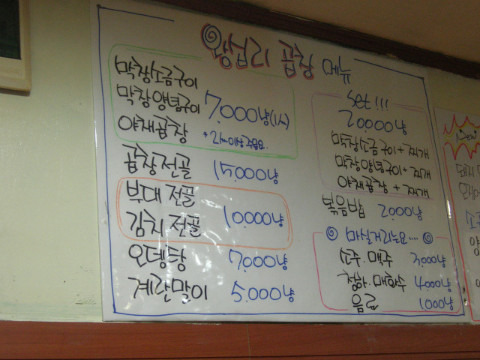 왕십리 곱창 메뉴
막창소금구이
막창양념구이 7,000냥(1人)
야채곱창
곱창전골 15,000냥
부대전골
김치전골 10,000냥
오뎅탕 7,000냥
계란말이 5,000냥
Set !!!
20000냥
막창소금구이+찌개
막창양념구이+찌개
야채곱창+찌개
볶음밥 2,000냥
마실거리는요...
소주.맥주 3,000냥
청하.매화수 4000냥
음료 1000냥